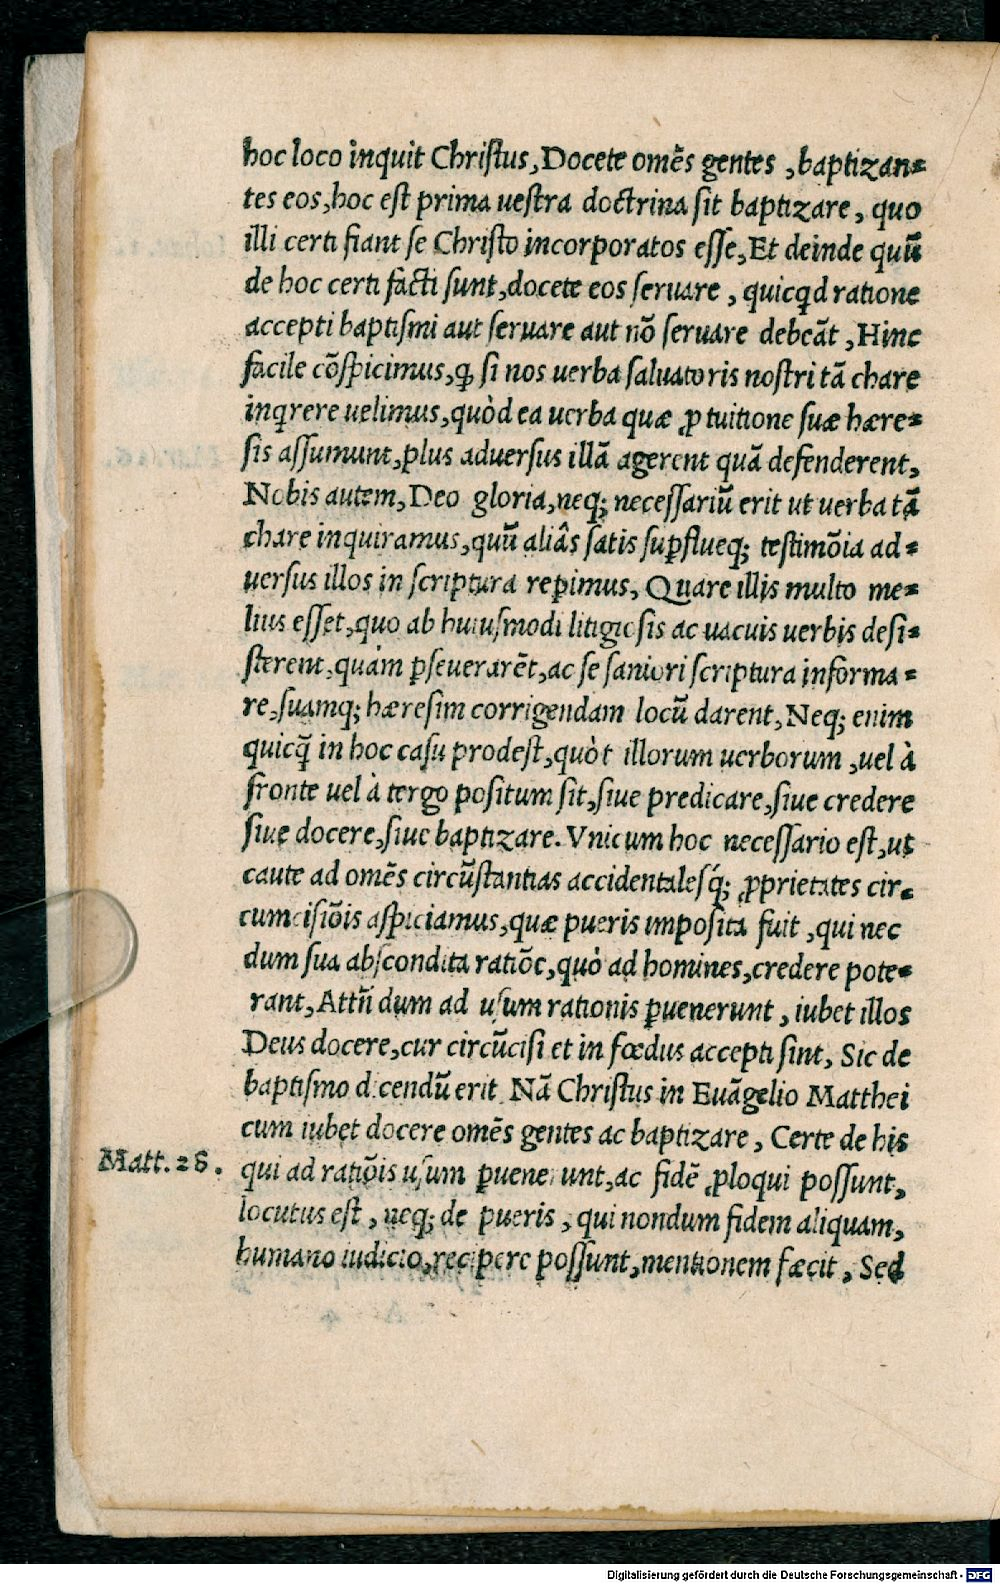 hoc loco inquit Christus, Docete omẽs gentes, baptizan=
tes eos, hoc est prima uestra doctrina sit baptizare, quo
illi certi fiant se Christo incorporatos esse, Et deinde quũ
de hoc certi facti sunt, docete eos seruare, quicꝗd ratione
accepti baptismi aut seruare aut nõ seruare debeãt, Hinc
facile cõspicimus, ꝙ si nos uerba saluatoris nostri tã chare
inꝗrere uelimus, quòd ea uerba quæ ꝓ tuitione suæ hære=
sis assumunt, plus aduersus illã agerent quã defenderent,
Nobis autem, Deo gloria, neq; necessariũ erit ut uerba tã
chare inquiramus, quũ aliâs satis suꝑflueq; testimõia ad=
uersus illos in scriptura reꝑimus, Quare illis multo me=
lius esset, quo ab huiusmodi litigiosis ac uacuis uerbis desi=
sterent, quàm ꝑseuerarẽt, ac se saniori scriptura informa=
re, suamq; hæresim corrigendam locũ darent, Neq; enim
quicq̃ in hoc casu prodest, quòt illorum uerborum, uel à
fronte uel à tergo positum sit, siue predicare, siue credere
siue docere, siue baptizare. Vnicum hoc necessario est, ut
caute ad omẽs circũstantias accidentalesq́; ꝓprietates cir=
cumcisiõis aspiciamus, quæ pueris imposita fuit, qui nec
dum sua abscondita ratiõe, quò ad homines, credere pote=
rant, Attñ dum ad usum rationis ꝑuenerunt, iubet illos
Deus docere, cur circũcisi et in fœdus accepti sint, Sic de
baptismo dicendũ erit Nã Christus in Euãgelio Matthei
cum iubet docere omẽs gentes ac baptizare, Certe de his
Matt. 28. qui ad ratiõis usum ꝑuenerunt, ac fidẽ ꝓloqui possunt,
locutus est, neq; de pueris, qui nondum fidem aliquam,
humano iudicio, recipere possunt, mentionem fæcit, Sed
Digitalisierung gefördert durch die Deutsche Forschungsgemeinschaft - DFG